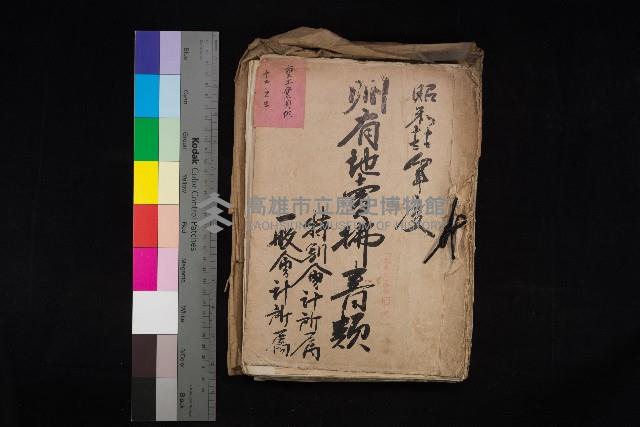 昭和十七年度
州有地賣拂書類
特別會計所属
一般會計所属
高雄市立歷史博物館
KAOHSIUNG MUSEUM OF HISTORY
Kodak
Color Control Patches
Blue
Cyan
Green
Yellow
Red
Magenta
White
3/Color
Black